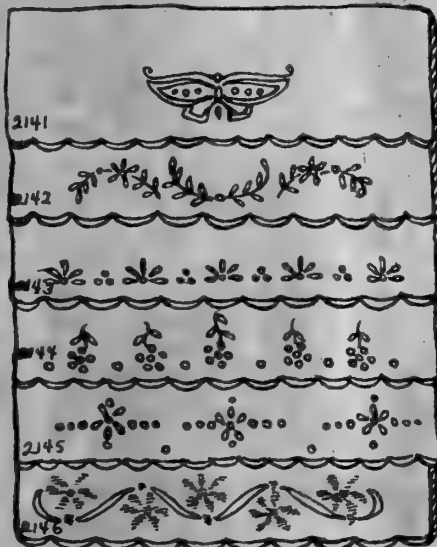 2141
2142
2143
2144
2145
2146